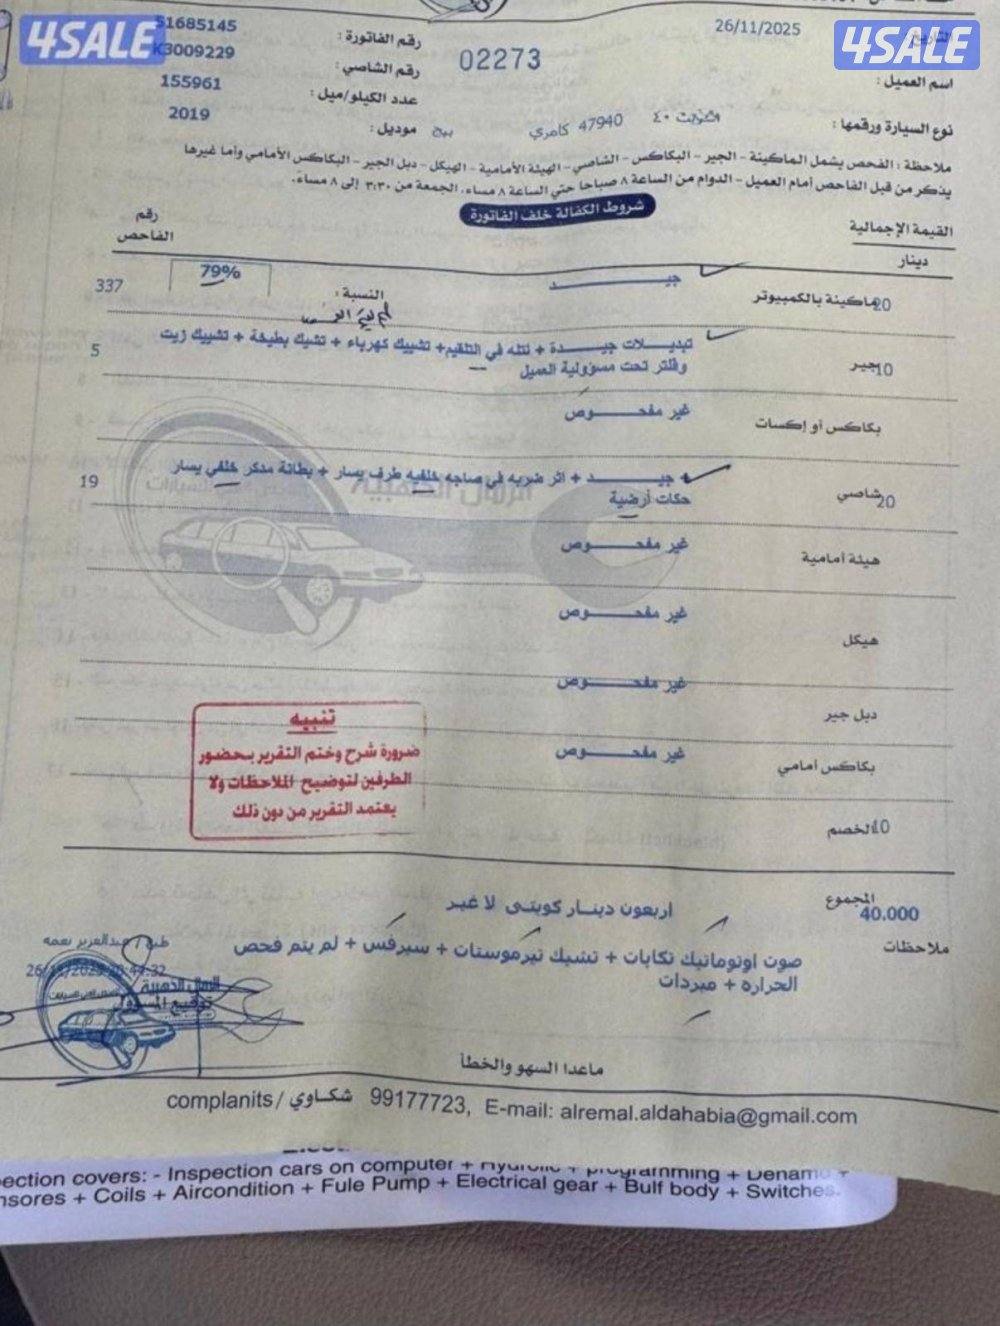 4SALE
4SALE
26/11/2025
التاريخ:
02273
رقم الفاتورة: 51685145
رقم الشاصي: K3009229
اسم العميل:
عدد الكيلو/ميل: 155961
نوع السيارة ورقمها: ٤٠ 47940 كامري بيج موديل: 2019
ملاحظة : الفحص يشمل الماكينة - الجير - البكاكس - الشاصي - الهيئة الأمامية - الهيكل - دبل الجير - البكاكس الأمامي وأما غيرها
يذكر من قبل الفاحص أمام العميل - الدوام من الساعة ٨ صباحا حتى الساعة ٨ مساء، الجمعة من ٣:٣٠ إلى ٨ مساءً.
شروط الكفالة خلف الفاتورة
القيمة الإجمالية
دينار
رقم
الفاحص
20 ماكينة بالكمبيوتر جيـــــد النسبة : 79% 337
10 جير تبديـــلات جيـــدة + نتله في التلقيم+ تشييك كهرباء + تشيك بطيخة + تشييك زيت 5
وفلتر تحت مسؤولية العميل
بكاكس أو إكسات غير مفحـــوص
20 شاصي جيـــــد + اثر ضربه في صاجه خلفيه طرف يسار + بطانة مدكر خلفي يسار 19
حكات أرضية
هيئة أمامية غير مفحـــوص
هيكل غير مفحـــوص
دبل جير غير مفحـــوص
بكاكس امامي غير مفحـــوص
الرمال الذهبية
تنبيه
ضرورة شرح وختم التقرير بحضور
الطرفين لتوضيح الملاحظات ولا
يعتمد التقرير من دون ذلك
10 الخصم
المجموع
40.000
اربعون دينار كويتي لا غير
ملاحظات
صوت اوتوماتيك تكايات + تشيك ثيرموستات + سيرفس + لم يتم فحص
الحراره + مبردات
طبع / عبدالعزيز نعمه
الرمال الذهبية
توقيع المسؤول
ماعدا السهو والخطأ
complanits / شكاوي 99177723, E-mail: alremal.aldahabia@gmail.com
ection covers: - Inspection cars on computer + Hydrolic + programming + Denamo +
nsores + Coils + Aircondition + Fule Pump + Electrical gear + Bulf body + Switches.